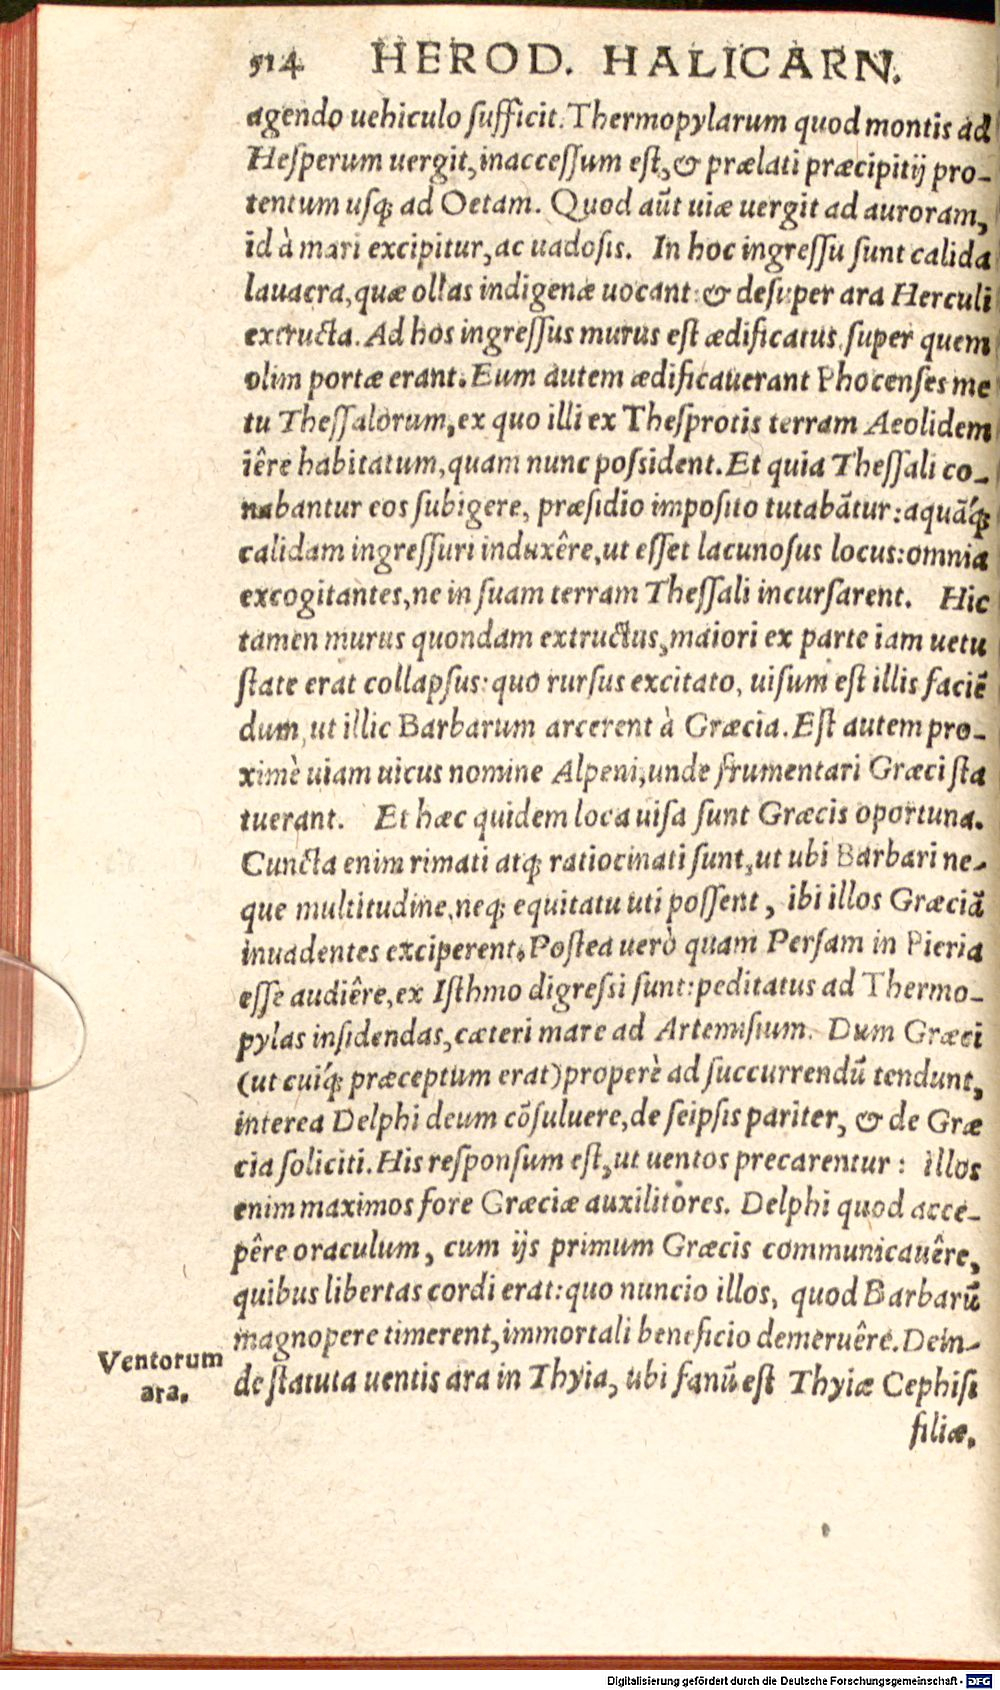 514 HEROD. HALICARN.
agendo uehiculo ſufficit. Thermopylarum quod montis ad
Heſperum uergit, inacceſſum eſt, & prælati præcipitij pro-
tentum uſq; ad Oetam. Quod aũt uiæ uergit ad auroram,
id à mari excipitur, ac uadoſis. In hoc ingreſſu ſunt calida
lauacra, quæ ollas indigenæ uocant: & deſuper ara Herculi
extructa. Ad hos ingreſſus murus eſt ædificatus, ſuper quem
olim portæ erant. Eum autem ædificauerant Phocenſes me
tu Theſſalorum, ex quo illi ex Theſprotis terram Aeolidem
iêre habitatum, quam nunc poſsident. Et quia Theſſali co-
nabantur eos ſubigere, præſidio impoſito tutabãtur: aquãq́;
calidam ingreſſuri induxêre, ut eſſet lacunoſus locus: omnia
excogitantes, ne in ſuam terram Theſſali incurſarent. Hic
tamen murus quondam extructus, maiori ex parte iam uetu
ſtate erat collapſus: quo rurſus excitato, uiſum eſt illis faciẽ
dum, ut illic Barbarum arcerent à Græcia. Eſt autem pro-
ximè uiam uicus nomine Alpeni, unde frumentari Græci ſta
tuerant. Et hæc quidem loca uiſa ſunt Græcis oportuna.
Cuncta enim rimati atq; ratiocinati ſunt, ut ubi Barbari ne-
que multitudine, neq; equitatu uti poſſent, ibi illos Græciã
inuadentes exciperent. Poſtea uerò quam Perſam in Pieria
eſſe audiêre, ex Iſthmo digreſsi ſunt: peditatus ad Thermo-
pylas inſidendas, cæteri mare ad Artemiſium. Dum Græci
(ut cuiq́; præceptum erat) properè ad ſuccurrendũ tendunt,
interea Delphi deum cõſuluere, de ſeipſis pariter, & de Græ
cia ſoliciti. His reſponſum eſt, ut uentos precarentur: illos
enim maximos fore Græciæ auxilitores. Delphi quod acce-
pêre oraculum, cum ijs primum Græcis communicauêre,
quibus libertas cordi erat: quo nuncio illos, quod Barbarũ
magnopere timerent, immortali beneficio demeruêre. Dein-
de ſtatuta uentis ara in Thyia, ubi fanũ eſt Thyiæ Cephiſi
filiæ.
Ventorum
ara.
Digitalisierung gefördert durch die Deutsche Forschungsgemeinschaft - DFG